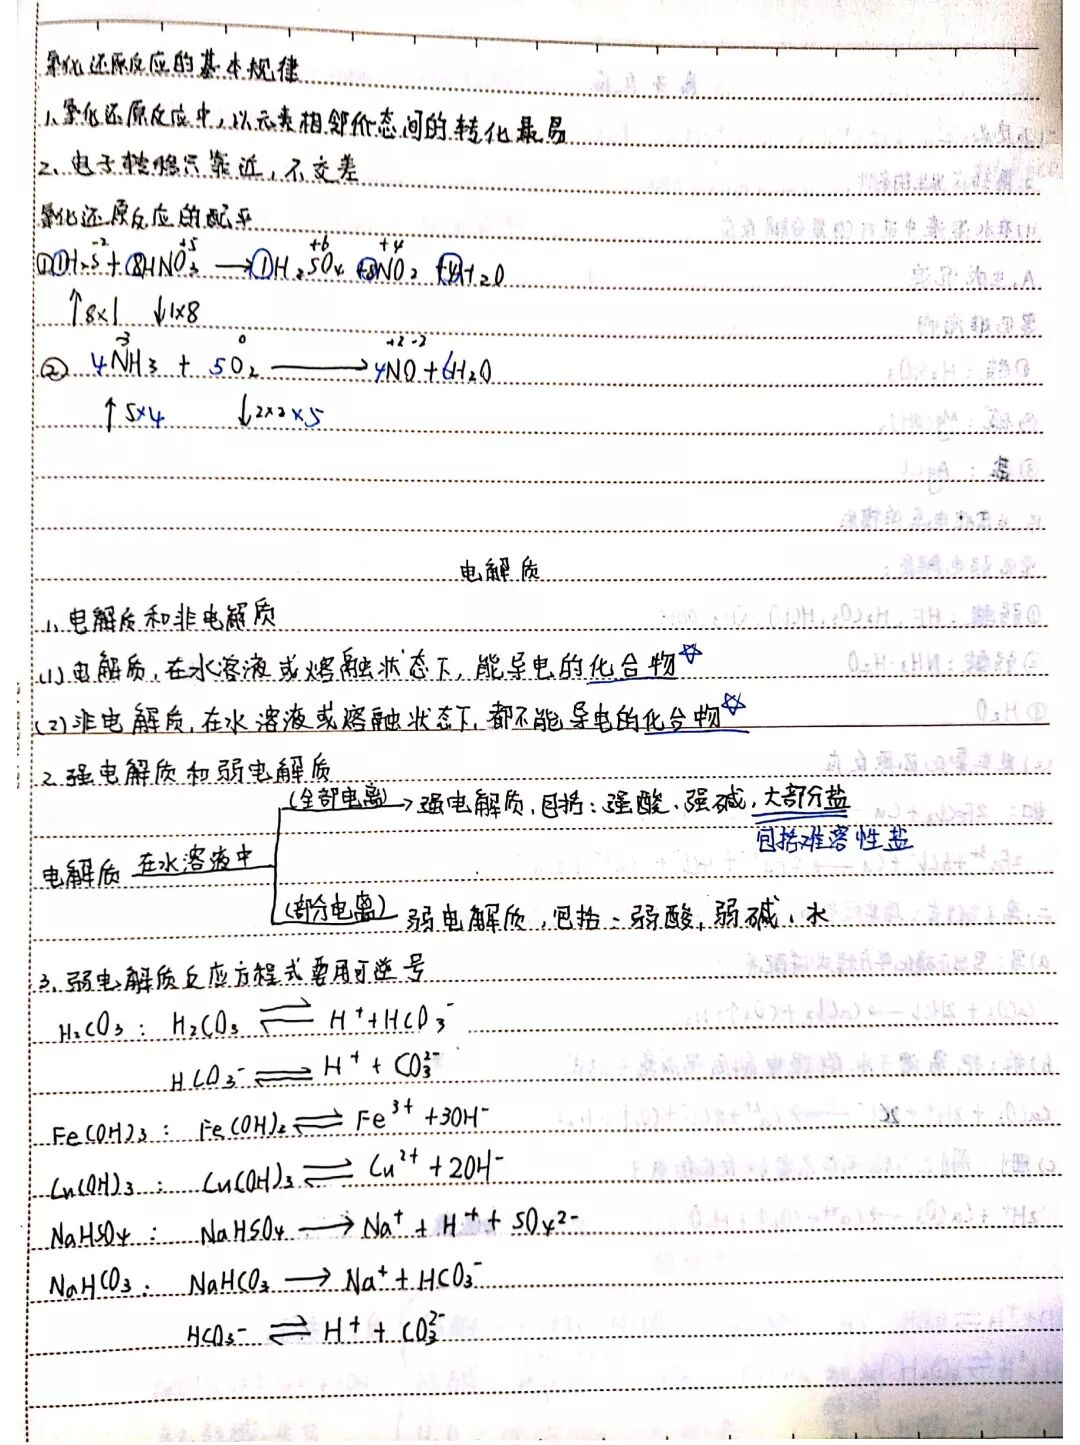 氧化还原反应的基本规律
1、氧化还原反应中，以元素相邻价态间的转化最易
2、电子转移只靠近，不交差
氧化还原反应的配平
-2 +5 +6 +4
①①H₂S + ⑧HNO₃ ⟶ ①H₂SO₄ + ⑧NO₂ + ④H₂O
↑8×1 ↓1×8
-3 0 +2 -2
② 4NH₃ + 5O₂ ⟶ 4NO + 6H₂O
↑5×4 ↓2×2×5
电解质
1、电解质和非电解质
(1)电解质，在水溶液或熔融状态下，能导电的化合物☆
(2)非电解质，在水溶液或熔融状态下，都不能导电的化合物☆
2、强电解质和弱电解质
(全部电离)→强电解质，包括：强酸、强碱，大部分盐
包括难溶性盐
电解质 在水溶液中
(部分电离) 弱电解质，包括：弱酸，弱碱、水
3、弱电解质反应方程式要用可逆号
H₂CO₃： H₂CO₃ ⇌ H⁺+HCO₃⁻
HCO₃⁻ ⇌ H⁺ + CO₃²⁻
Fe(OH)₃： Fe(OH)₂ ⇌ Fe³⁺ +3OH⁻
Cu(OH)₃： Cu(OH)₃ ⇌ Cu²⁺ +2OH⁻
NaHSO₄： NaHSO₄ ⟶ Na⁺ + H⁺ + SO₄²⁻
NaHCO₃： NaHCO₃ ⟶ Na⁺ + HCO₃⁻
HCO₃⁻ ⇌ H⁺ + CO₃²⁻